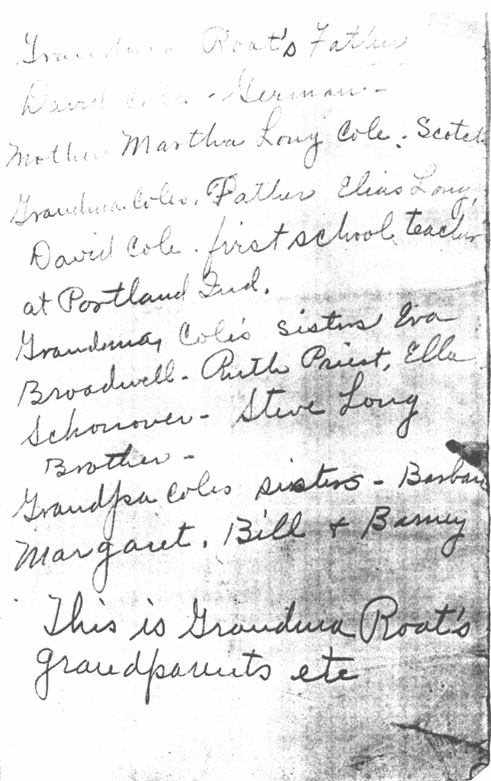 Grandma Roat's Father
David Cole - German -
Mother Martha Long Cole. Scotch
Grandma Coles. Father Elias Long
David Cole. first school teacher
at Portland Ind.
Grandma, Cole's sisters Eva
Broadwell - Ruth Priest, Ella
Schonover - Steve Long
Brother -
Grandpa Coles sisters - Barbary
Margaret. Bill + Barney
This is Grandma Roat's
grandparents etc